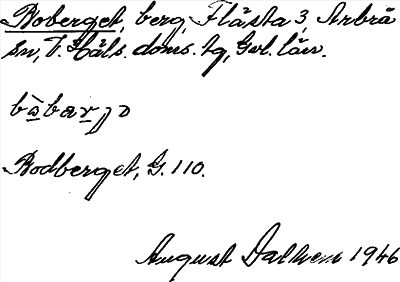 Roberget, berg, Flästa 3, Arbrå
sn, V. Häls. doms. tg, Gvl. län.
Rodberget, G. 110.
August Dalhem 1946